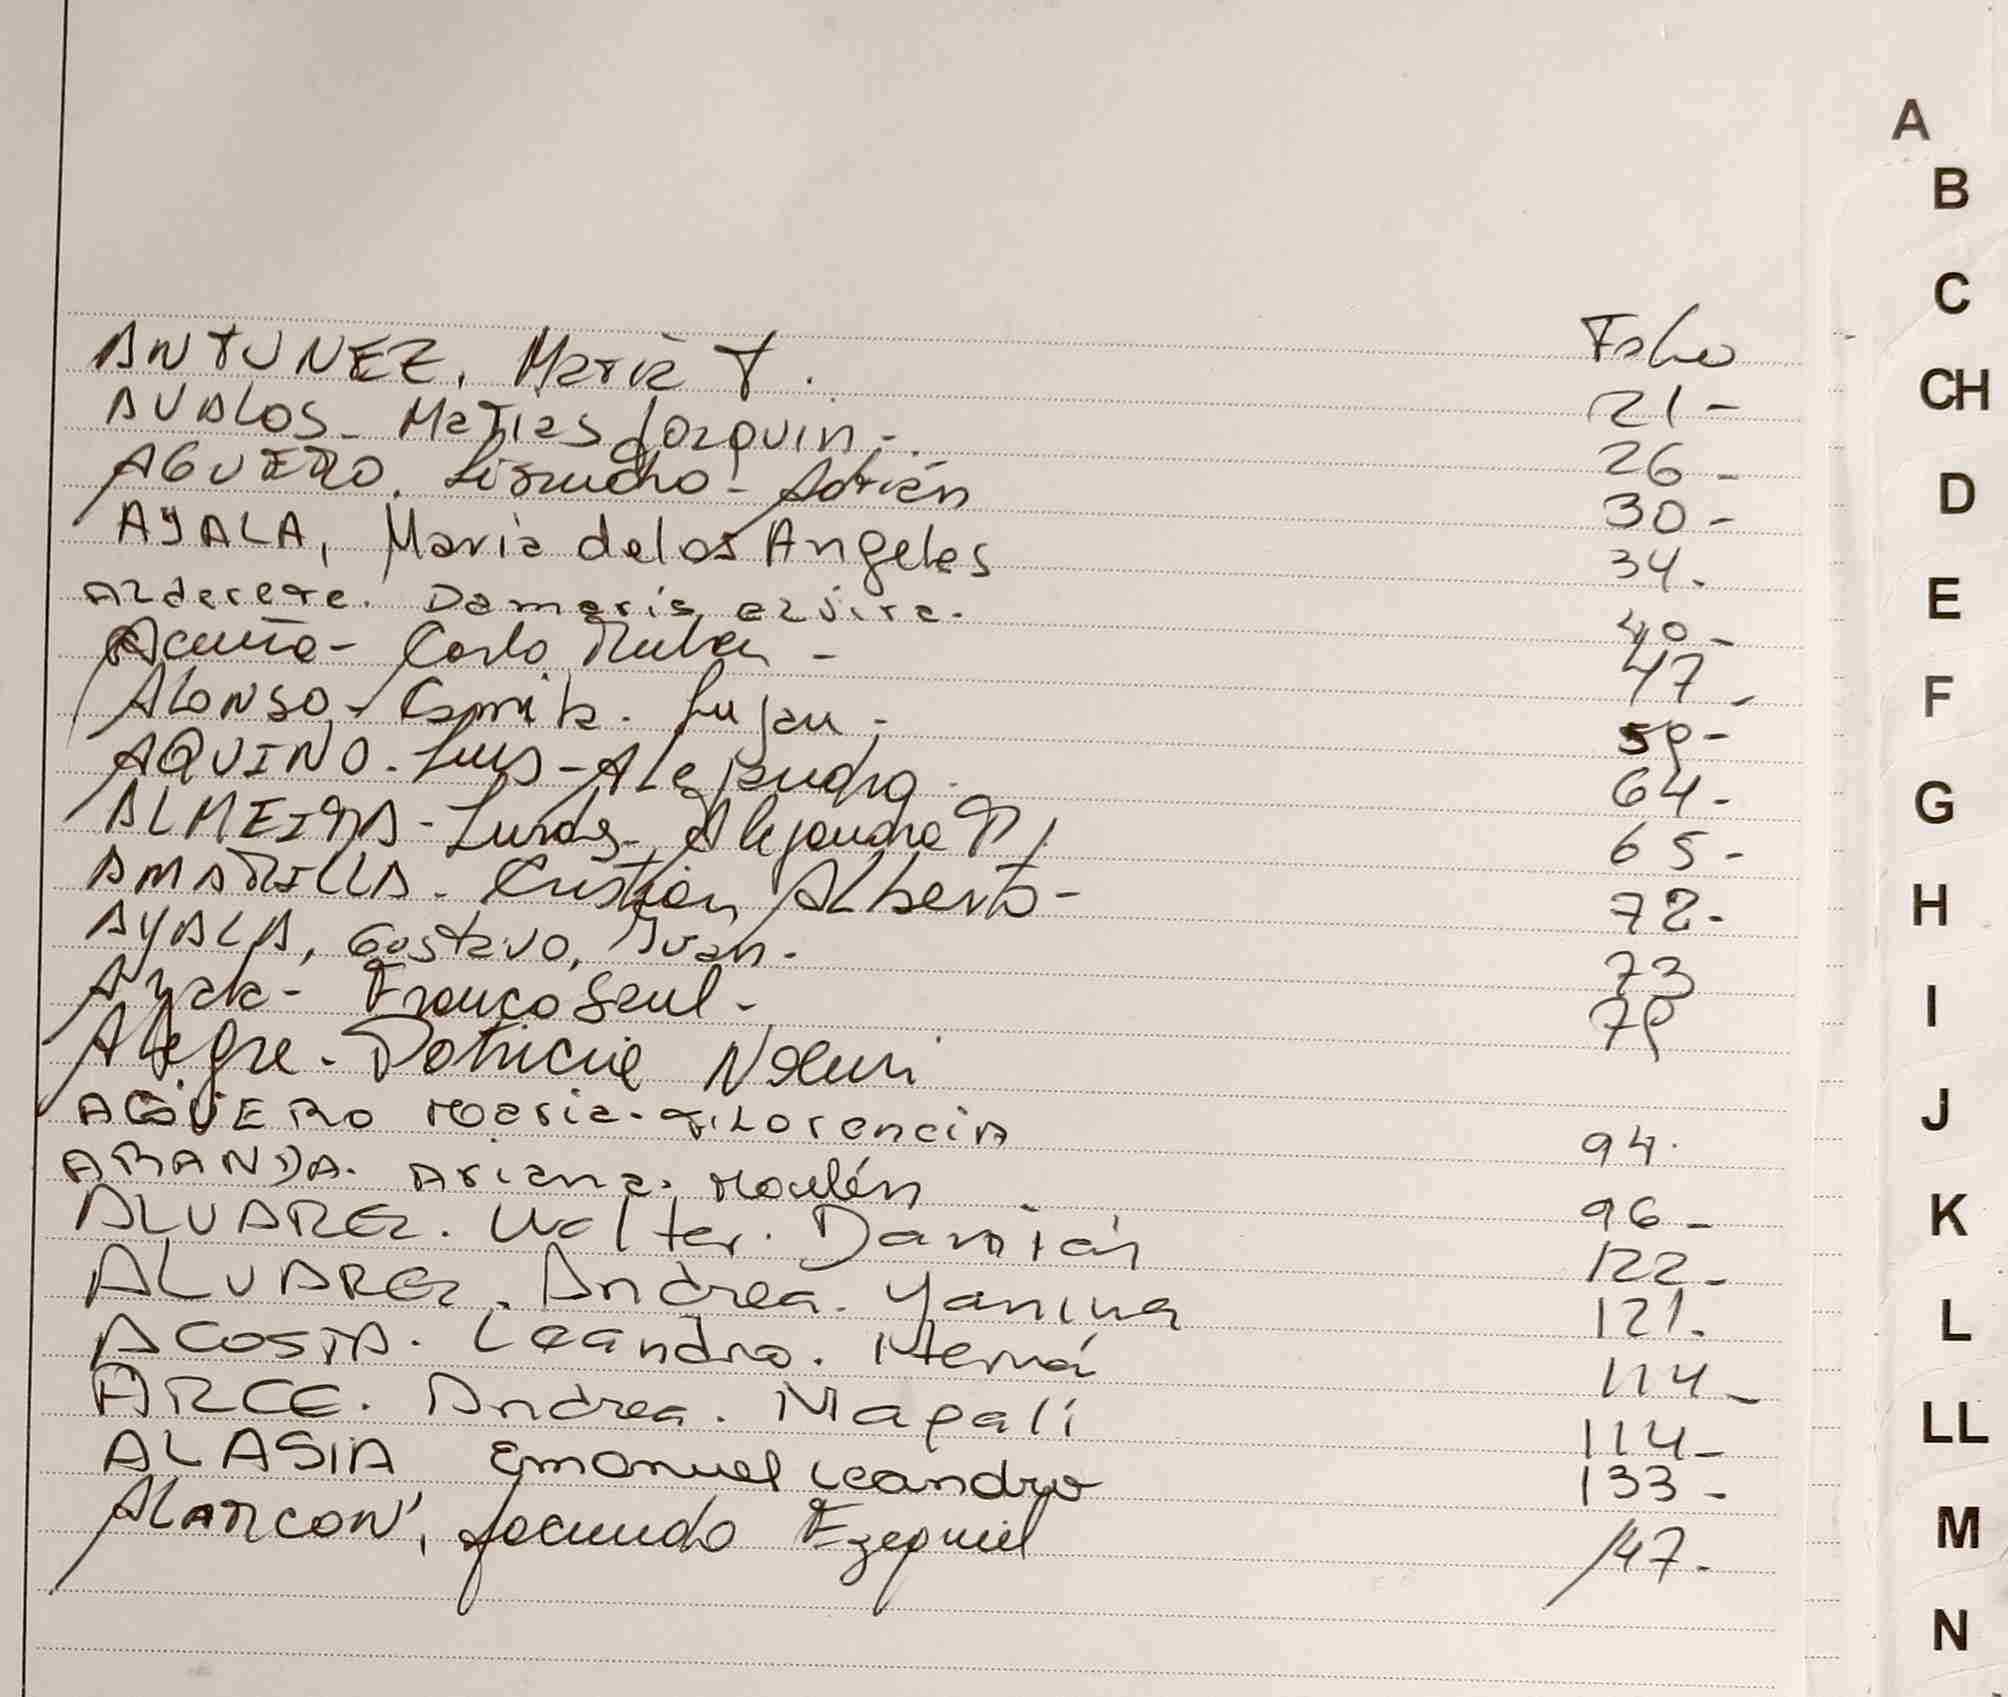 Folio
ANTUNEZ, María T.
21-
AVALOS- Matias Joaquin-.
26-
AGUERO. Lisandro- Adrián
30-
AYALA, Maria de los Angeles
34.
Alderete. Damaris elvira.
40-
Acuña- Carlo Ruben-
47-
ALONSO- Camila. Lujan-
59-
AQUINO. Luis-Alejandro.
64-
ALMEIDA- Lucas- Alejandro
65-
AMARILLA. Cristian Alberto-
72-
AYALA, Gustavo, Ivan.
73
Ayala- Franco Saul-
79
Alegre- Patricia Noemi
AGUERO Maria-Florencia
94.
ARANDA. Ariana. Mailén
96-
ALVAREZ. Walter. Damián
122-
ALVAREZ. Andrea. Yanina
121.
ACOSTA. Leandro. Herná
114-
ARCE. Andrea. Magalí
114-
ALASIA Emanuel Leandro
133-
ALARCON, Facundo Ezequiel
147.
A
B
C
CH
D
E
F
G
H
I
J
K
L
LL
M
N